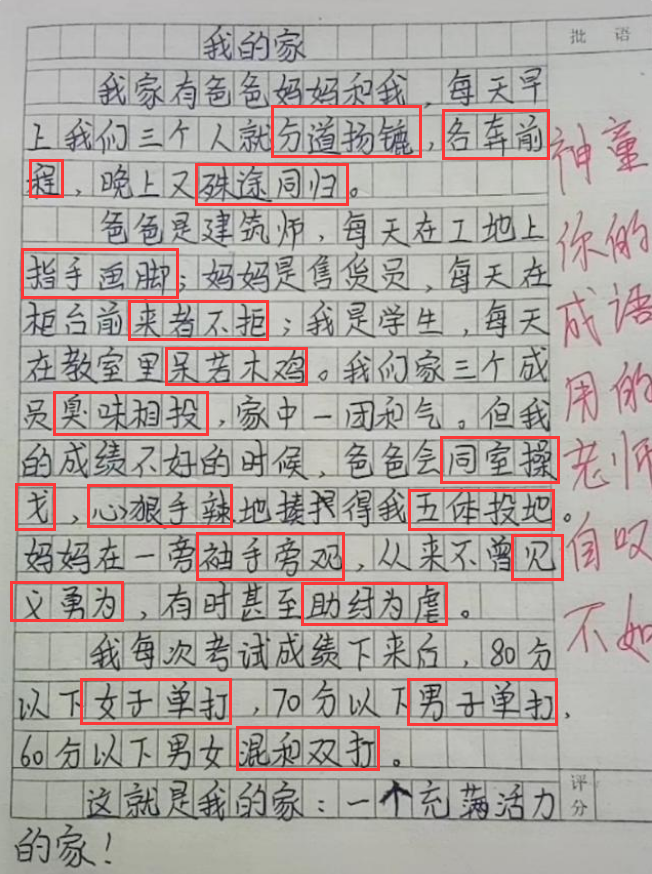 我的家
批 语
我家有爸爸妈妈和我，每天早
上我们三个人就分道扬镳，各奔前
程，晚上又殊途同归。
爸爸是建筑师，每天在工地上
指手画脚；妈妈是售货员，每天在
柜台前来者不拒；我是学生，每天
在教室里呆若木鸡。我们家三个成
员臭味相投，家中一团和气。但我
的成绩不好的时候，爸爸会同室操
戈，心狠手辣地揍得我五体投地。
妈妈在一旁袖手旁观，从来不曾见
义勇为，有时甚至助纣为虐。
我每次考试成绩下来后，80分
以下女子单打，70分以下男子单打，
60分以下男女混和双打。
这就是我的家：一个充满活力
的家！
评
分
神童
你的
成语
用的
老师
自叹
不如